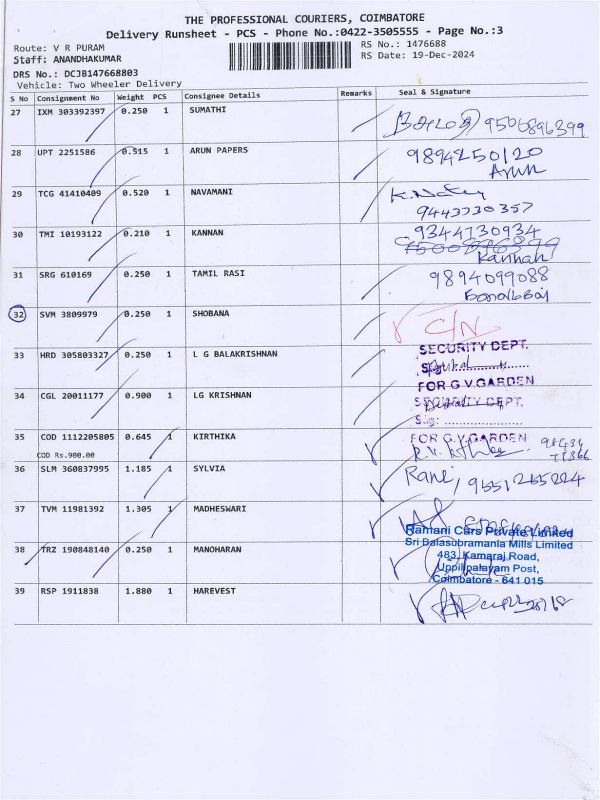 THE PROFESSIONAL COURIERS, COIMBATORE
Delivery Runsheet - PCS - Phone No.:0422-3505555 - Page No.:3
Route: V R PURAM
RS No.: 1476688
Staff: ANANDHAKUMAR
RS Date: 19-Dec-2024
DRS No.: DCJB147668803
Vehicle: Two Wheeler Delivery
S No Consignment No Weight PCS Consignee Details Remarks Seal & Signature
27 IXM 303392397 0.250 1 SUMATHI
28 UPT 2251586 0.515 1 ARUN PAPERS 9894250120
Arun
29 TCG 41410409 0.520 1 NAVAMANI
9443730357
30 TMI 10193122 0.210 1 KANNAN 9344130934
Kannan
31 SRG 610169 0.250 1 TAMIL RASI 9894099088
32 SVM 3809979 0.250 1 SHOBANA C/N
33 HRD 305803327 0.250 1 L G BALAKRISHNAN SECURITY DEPT.
FOR G.V.GARDEN
34 CGL 20011177 0.900 1 LG KRISHNAN SECURITY DEPT.
Sig:
FOR G.V.GARDEN
35 COD 1112205805 0.645 1 KIRTHIKA
COD Rs.900.00
36 SLM 360837995 1.185 1 SYLVIA Rani, 9551265224
37 TVM 11981392 1.305 1 MADHESWARI
Ramani Cars Private Limited
Sri Balasubramania Mills Limited
38 TRZ 190848140 0.250 1 MANOHARAN 483, Kamaraj Road,
Uppilipalayam Post,
Coimbatore - 641 015
39 RSP 1911838 1.880 1 HAREVEST